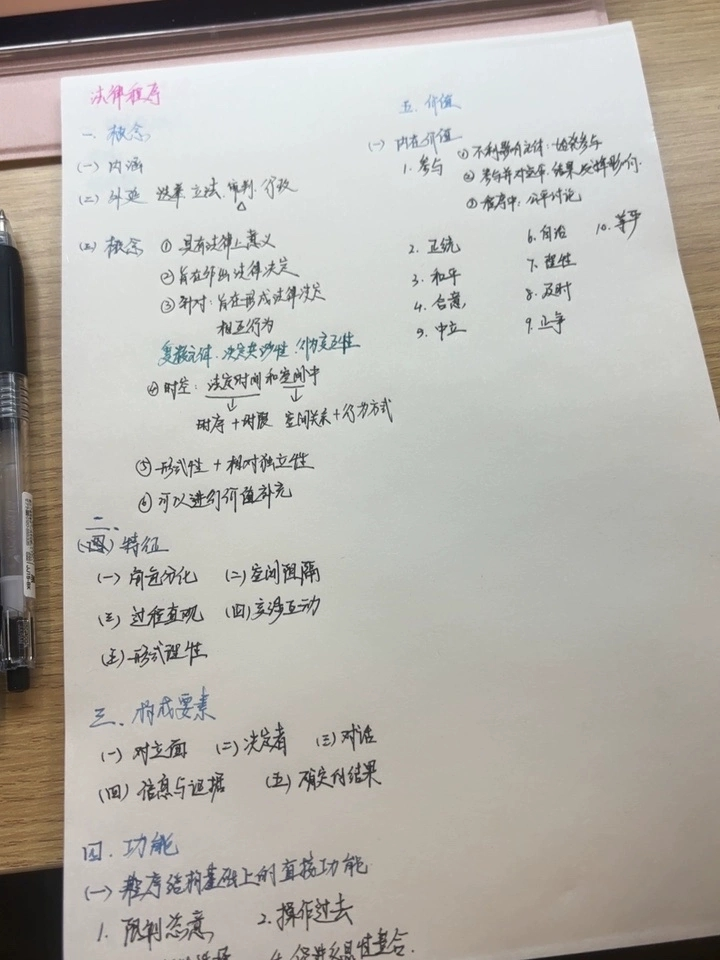 法律程序
一. 概念
(一) 内涵
(二) 外延 选举. 立法. 审判. 行政
(三) 概念 ① 具有法律上意义
② 旨在作出法律决定
③ 针对: 旨在形成法律决定
相互行为
复数主体. 决定交涉性. 行为交互性
④ 时空: 法定时间和空间中
时序 + 时限 空间关系 + 行为方式
⑤ 形式性 + 相对独立性
⑥ 可以进行价值补充
二.
特征
(一) 角色分化 (二) 空间阻隔
(三) 过程直观 (四) 交涉互动
(五) 形式理性
三. 构成要素
(一) 对立面 (二) 决定者 (三) 对话
(四) 信息与证据 (五) 确定的结果
四. 功能
(一) 程序结构基础上的直接功能
1. 限制恣意 2. 操作过去
五. 价值
(一) 内在价值
1. 参与 ① 不利影响主体: 均获参与
② 参与并对定审. 结果. 选择影响.
③ 程序中: 公平讨论
2. 正统 6. 自治 10. 等平
3. 和平 7. 理性
4. 合意 8. 及时
5. 中立 9. 正争